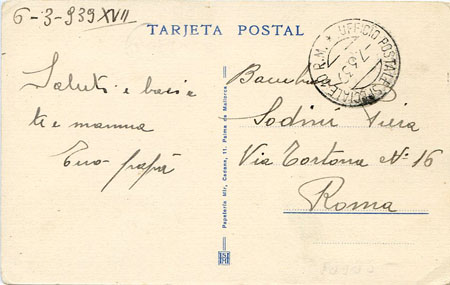 6-3-939 XVII
TARJETA POSTAL
UFFICIO POSTALE SPECIALE
R.M.
Saluti e baci a
te e mamma
Tuo papà
Papeleria Mir, Cadena, 11. Palma de Mallorca
Sodini
Via Tortona No 16
Roma